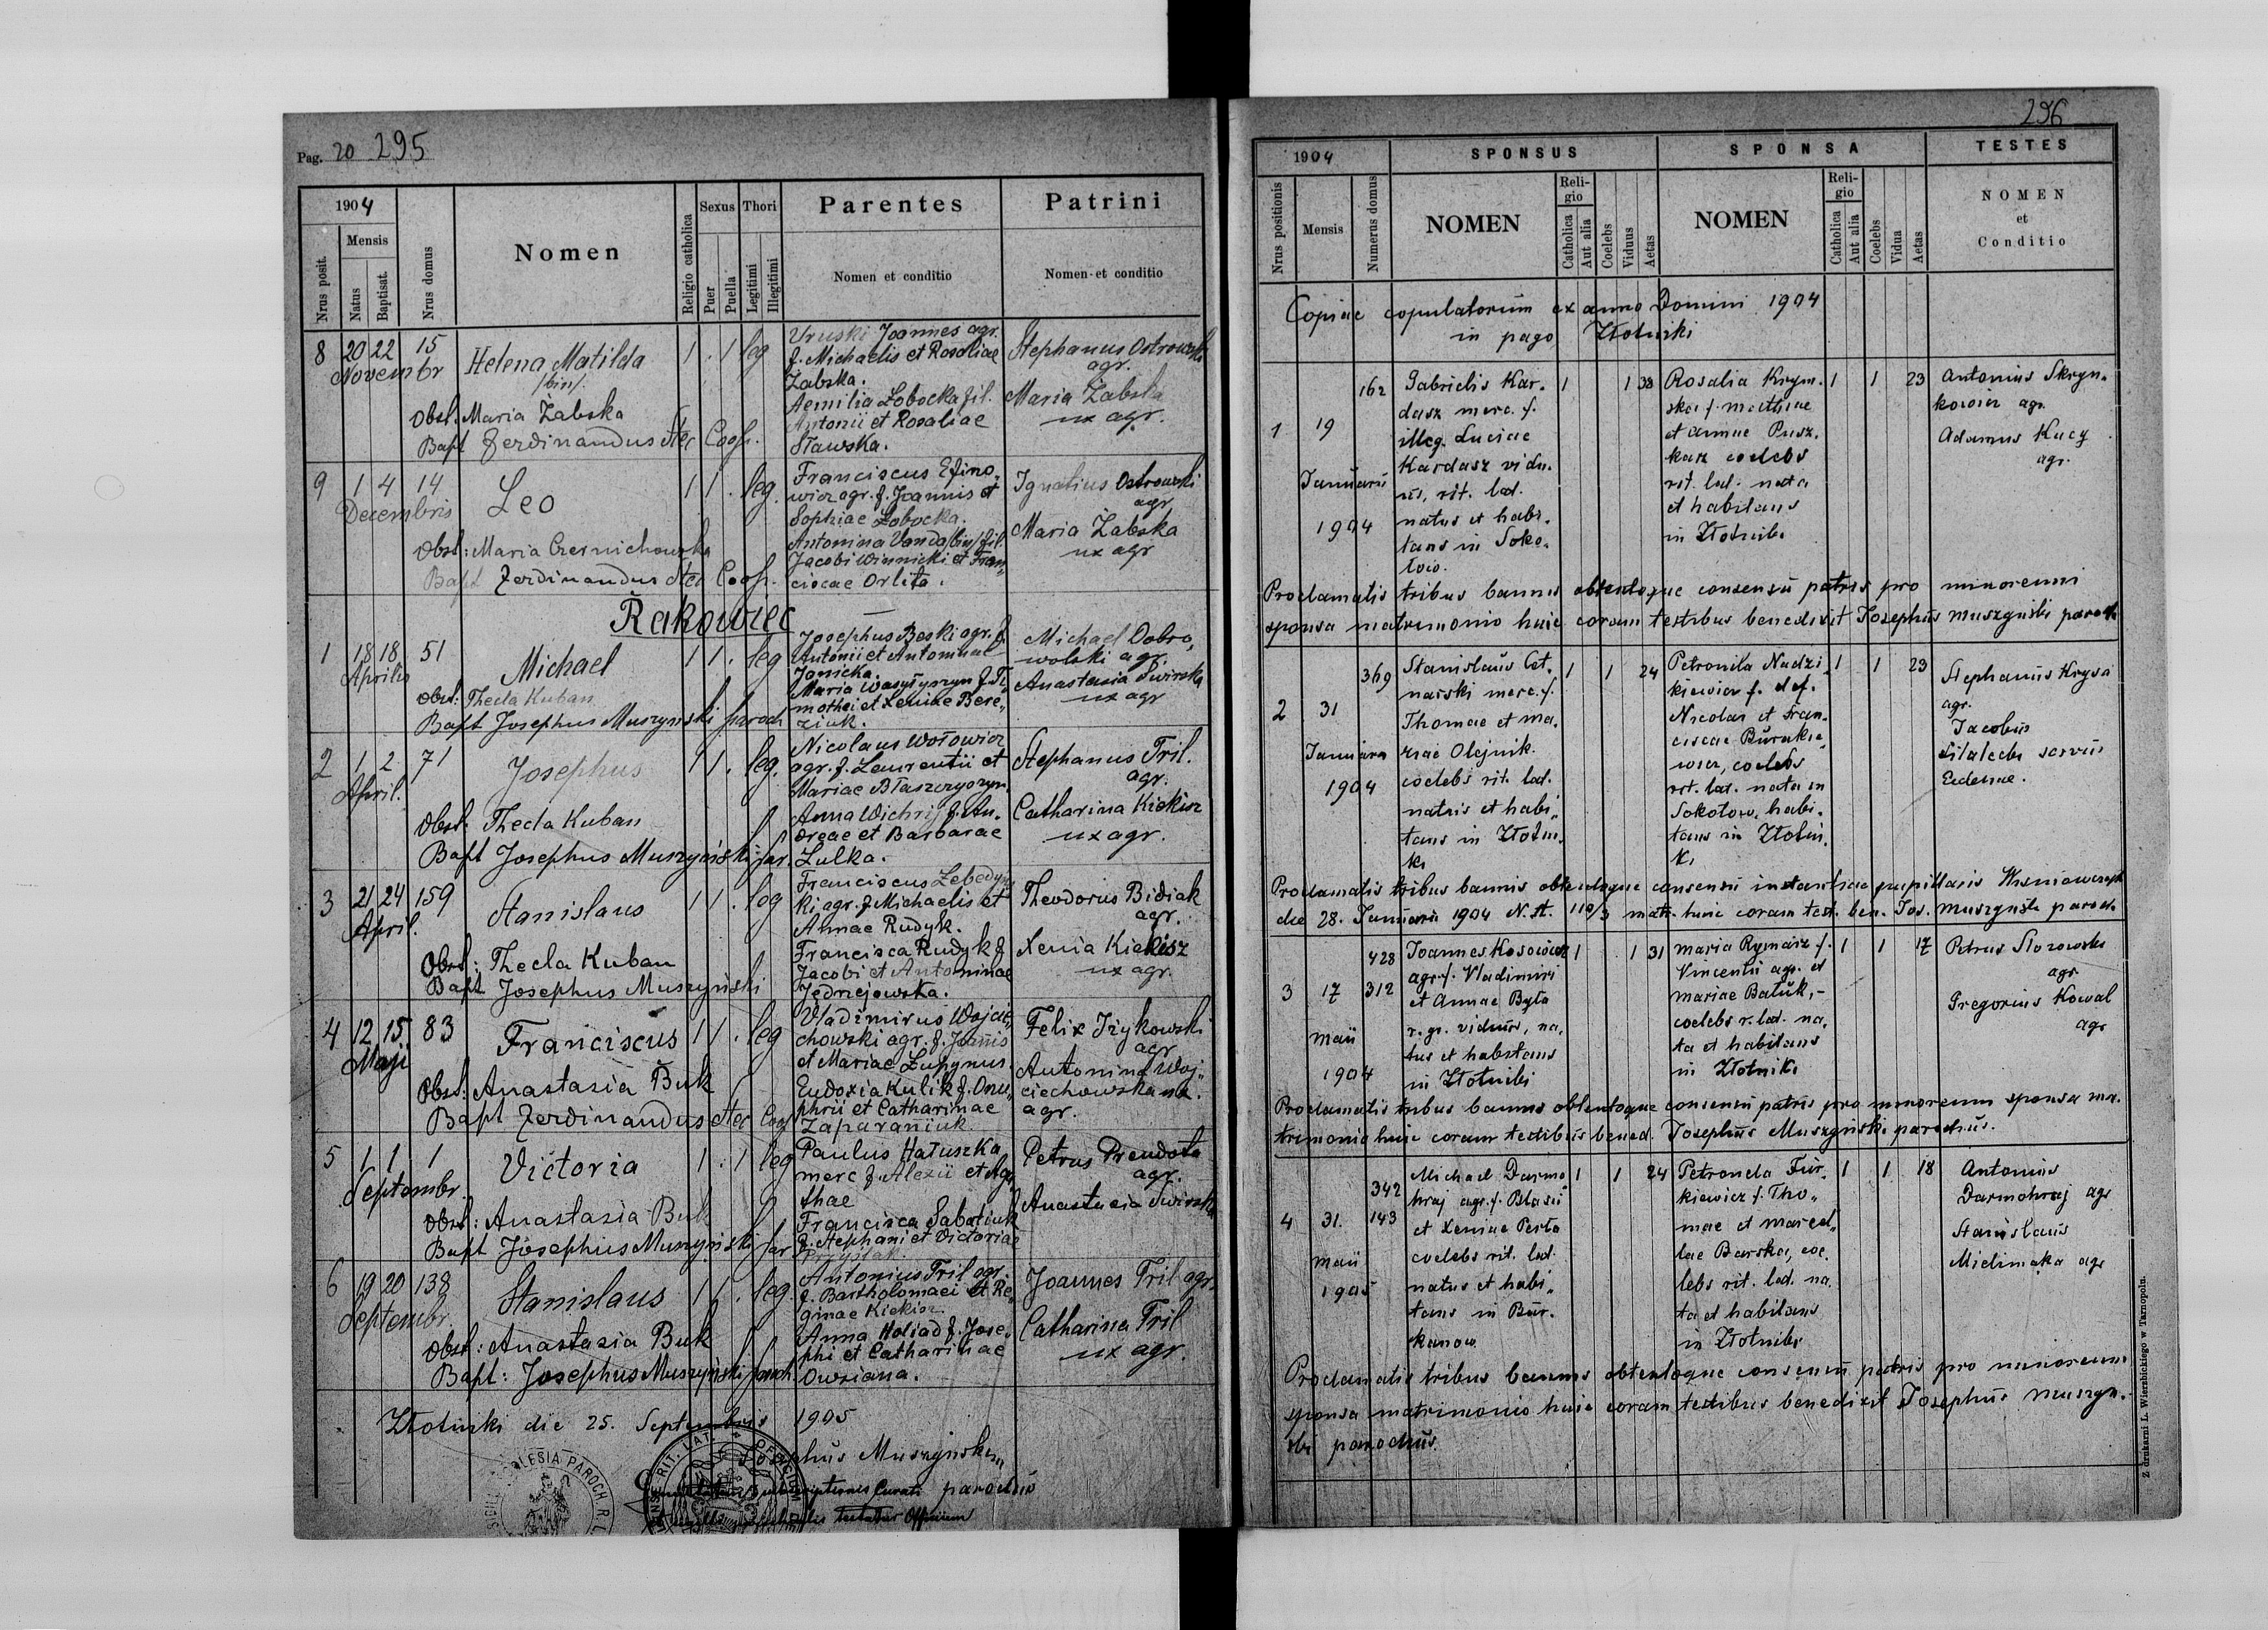 Pag. 20 295
1904
Mensis
Nrus posit.
Natus
Baptisat.
Nrus domus
Nomen
Religio catholica
Sexus
Puer
Puella
Thori
Legitimi
Illegitimi
Parentes
Nomen et conditio
Patrini
Nomen et conditio
8 20 22 15
Novembr
Helena Matilda
/bin/.
1 . 1 leg
Obst: Maria Żabska
Bapt Ferdinandus Coop.
Uruski Joannes agr.
f. Michaelis et Rosaliae
Żabska.
Aemilia Łobocka fil.
Antonii et Rosaliae
Sławska.
Stephanus Ostrowski
agr.
Maria Żabska
ux agr.
9 1 4 14
Decembris
Leo
1 1 . leg.
Obst: Maria Czernichowska
Bapt Ferdinandus Coop.
Franciscus Efino-
wicz agr. f. Joannis et
Sophiae Łobocka.
Antonina Vanda /bin/ fil.
Jacobi Winnicki et Fran„
ciscae Orlita.
Ignatius Ostrowski
agr
Maria Żabska
ux agr
Rakowiec
1 18 18 51
Aprilis
Michael
1 1 . leg
Obst: Thecla Kuban
Bapt Josephus Muszynski paroch
Josephus Beski agr. f.
Antonii et Antoninae
Janicka.
Maria Wasyłyszyn f. Ti„
mothei et Xeniae Bere„
ziuk.
Michael Dobro„
wolski agr.
Anastasia Swirska
ux agr
2 1 2 71
April.
Josephus
1 1 . leg.
Obst. Thecla Kuban
Bapt Josephus Muszyński par.
Nicolaus Wołowicz
agr. f. Laurentii et
Mariae Błaszczyszyn
Anna Wichrij f. An„
dreae et Barbarae
Lulka.
Stephanus Tril.
agr.
Catharina Kiekisz
ux agr.
3 21 24 159
April.
Stanislaus
1 1 . leg
Obst: Thecla Kuban
Bapt Josephus Muszyński
Franciscus Lebedyns
ki agr. f Michaelis et
Annae Rudyk.
Francisca Rudyk f
Jacobi et Antoninae
Jędrzejowska.
Theodorus Bidiak
agr.
Xenia Kiekisz
ux agr.
4 12 15 83
Maji
Franciscus
1 1 . leg
Obst: Anastasia Buk
Bapt Ferdinandus Coop
Vladimirus Wojcie„
chowski agr. f. Joannis
et Mariae Zuhynus
Eudoxia Kulik f. Onu„
phrii et Catharinae
Zaparaniuk.
Felix Iżykowski
agr
Antonina Woj„
ciechowska ux.
agr.
5 1 1 1
Septembr.
Victoria
1 . 1 leg
Obst: Anastasia Buk
Bapt Josephus Muszyński par
Paulus Hałuszka
merc f. Alexii et Aga
thae
Francisca Sabatiuk
f. Stephani et Victoriae
Przystak.
Petrus Prendota
agr.
Anastasia Swirska
6 19 20 138
Septembr.
Stanislaus
1 1 . leg.
Obst: Anastasia Buk
Bapt: Josephus Muszyński paroch.
Antonius Tril agr.
f. Bartholomaei et Re„
ginae Kiekisz
Anna Holiad f. Jose„
phi et Catharinae
Owsiana.
Joannes Tril agr.
Catharina Tril
ux agr.
Złotniki die 25. Septembris 1905
Josephus Muszyński
parochus
296
1904
Nrus positionis
Mensis
Numerus domus
SPONSUS
NOMEN
Religio
Catholica
Aut alia
Coelebs
Viduus
Aetas
SPONSA
NOMEN
Religio
Catholica
Aut alia
Coelebs
Vidua
Aetas
TESTES
NOMEN
et
Conditio
Copiae copulatorum ex anno Domini 1904
in pago Złotniki
1 19
Januarii
1904
162
Gabrielis Kar.
dasz merc. f.
illeg. Luciae
Kardasz vidu.
us, rit. lat.
natus et habi.
tans in Soko.
low.
1 1 38
Rosalia Krym.
ska f. Mathiae
et Annae Pusz.
karz coelebs
rit. lat. nata
et habitans
in Złotniki
1 1 23
Antonius Skryn.
kowicz agr.
Adamus Kucy
agr.
Proclamatis tribus bannis obtentoque consensu patris pro minorenni
sponsa matrimonio huic coram testibus benedixit Josephus Muszyński paroch
2 31
Januara
1904
369
Stanislaus Cet.
narski merc. f.
Thomae et Ma.
riae Olejnik.
coelebs rit. lat.
natus et habi„
tans in Złotni.
ki
1 1 24
Petronila Nudzi
kiewicz f. def.
Nicolai et Fran.
ciscae Burakie„
wicz, coelebs
rit. lat. nata in
Sokołow, habi.
tans in Złotni.
ki
1 1 23
Stephanus Krysa
agr.
Jacobus
servus
Proclamatis tribus bannis obtentoque consensu instantiae pupillaris Wisniowczyk
die 28. Januarii 1904 N. A. 110/3 matr. huic coram test. ben. Jos. Muszyński paroch.
3 17
Maii
1904
428
312
Joannes Kosowicz
agr. f. Vladimiri
et Annae Byla
r. gr. viduus, na.
tus et habitans
in Złotniki
1 1 31
Maria Rymarz f.
Vincentii agr. et
Mariae Batuk,-
coelebs r. lat. na.
ta et habitans
in Złotniki
1 1 17
Petrus Slozowski
agr
Gregorius Kowal
agr
Proclamatis tribus bannis obtentoque consensu patris pro minorenni sponsa ma.
trimonio huic coram testibus bened. Josephus Muszyński parochus.
4 31.
Maii
1905
342
143
Michael Darmo
hraj agr. f. Blasii
et Xeniae Perta
coelebs rit. lat.
natus et habi„
tans in Bur.
kanow
1 1 24
Petronela Fur.
kiewicz f. Tho„
mae et Marcel„
lae Barska, coe.
lebs rit. lat. na.
ta et habitans
in Złotniki
1 1 18
Antonius
Darmohraj agr
Stanislaus
agr
Proclamatis tribus bannis obtentoque consensu patris pro minorenni
sponsa matrimonio huic coram testibus benedixit Josephus Muszyn.
ski parochus.
Z drukarni L. Wierzbickiego w Tarnopolu.